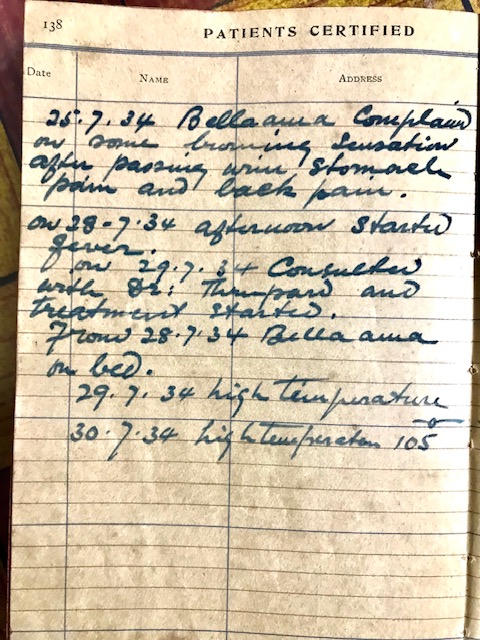 138
PATIENTS CERTIFIED
Date NAME ADDRESS
25.7.34 Bellaama Complaind
on some browning Sensation
after passing urin Stomach
pain and back pain.
on 28-7.34 afternoon Started
fever.
on 29.7.34 Consulted
with Dr: and
treatment Started.
From 28.7.34 Bellaama
on bed.
29.7.34 high temperature
30.7.34 high temperatur 105°